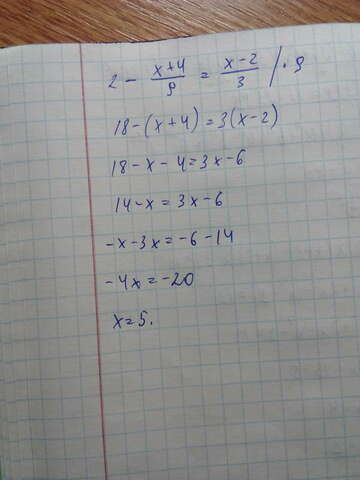 2 - (x+4)/9 = (x-2)/3 /·9
18-(x+4)=3(x-2)
18-x-4=3x-6
14-x=3x-6
-x-3x=-6-14
-4x=-20
x=5.